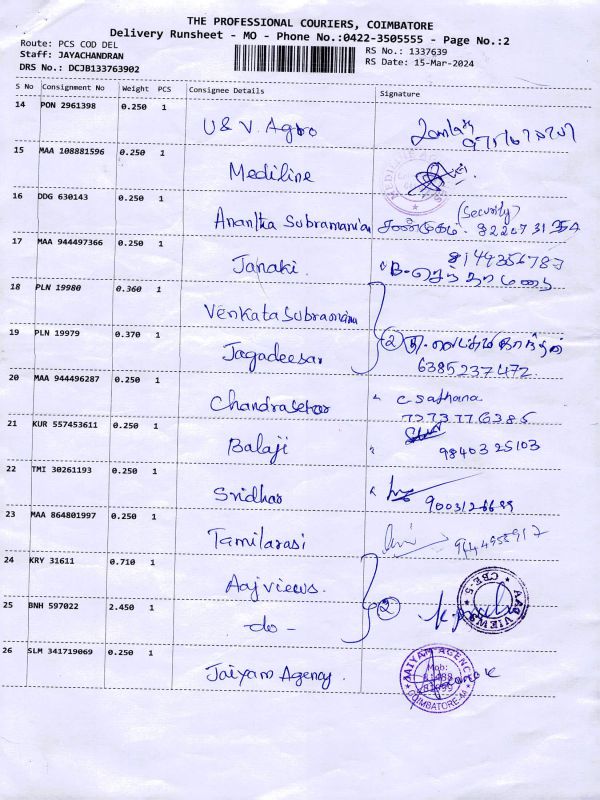 THE PROFESSIONAL COURIERS, COIMBATORE
Delivery Runsheet - MO - Phone No.:0422-3505555 - Page No.:2
Route: PCS COD DEL
Staff: JAYACHANDRAN
DRS No.: DCJB133763902
RS No.: 1337639
RS Date: 15-Mar-2024
S No Consignment No Weight PCS Consignee Details Signature
14 PON 2961398 0.250 1
U & V. Agro
15 MAA 108881596 0.250 1
Mediline
16 DDG 630143 0.250 1
Anantha Subramanian சண்முகம். (Security)
17 MAA 944497366 0.250 1
Janaki.
18 PLN 19980 0.360 1
Venkata Subramani
19 PLN 19979 0.370 1
Jagadeesan 2
6385237472.
20 MAA 944496287 0.250 1
Chandrasekar c sathana
7373776385
21 KUR 557453611 0.250 1
Balaji 98403 25103
22 TMI 30261193 0.250 1
Sridhar
23 MAA 864801997 0.250 1
Tamilarasi
24 KRY 31611 0.710 1
Aaj views. 2
25 BNH 597022 2.450 1
- do -
AAJ VIEWS
CBE-5
26 SLM 341719069 0.250 1
Jaiyam Agency.